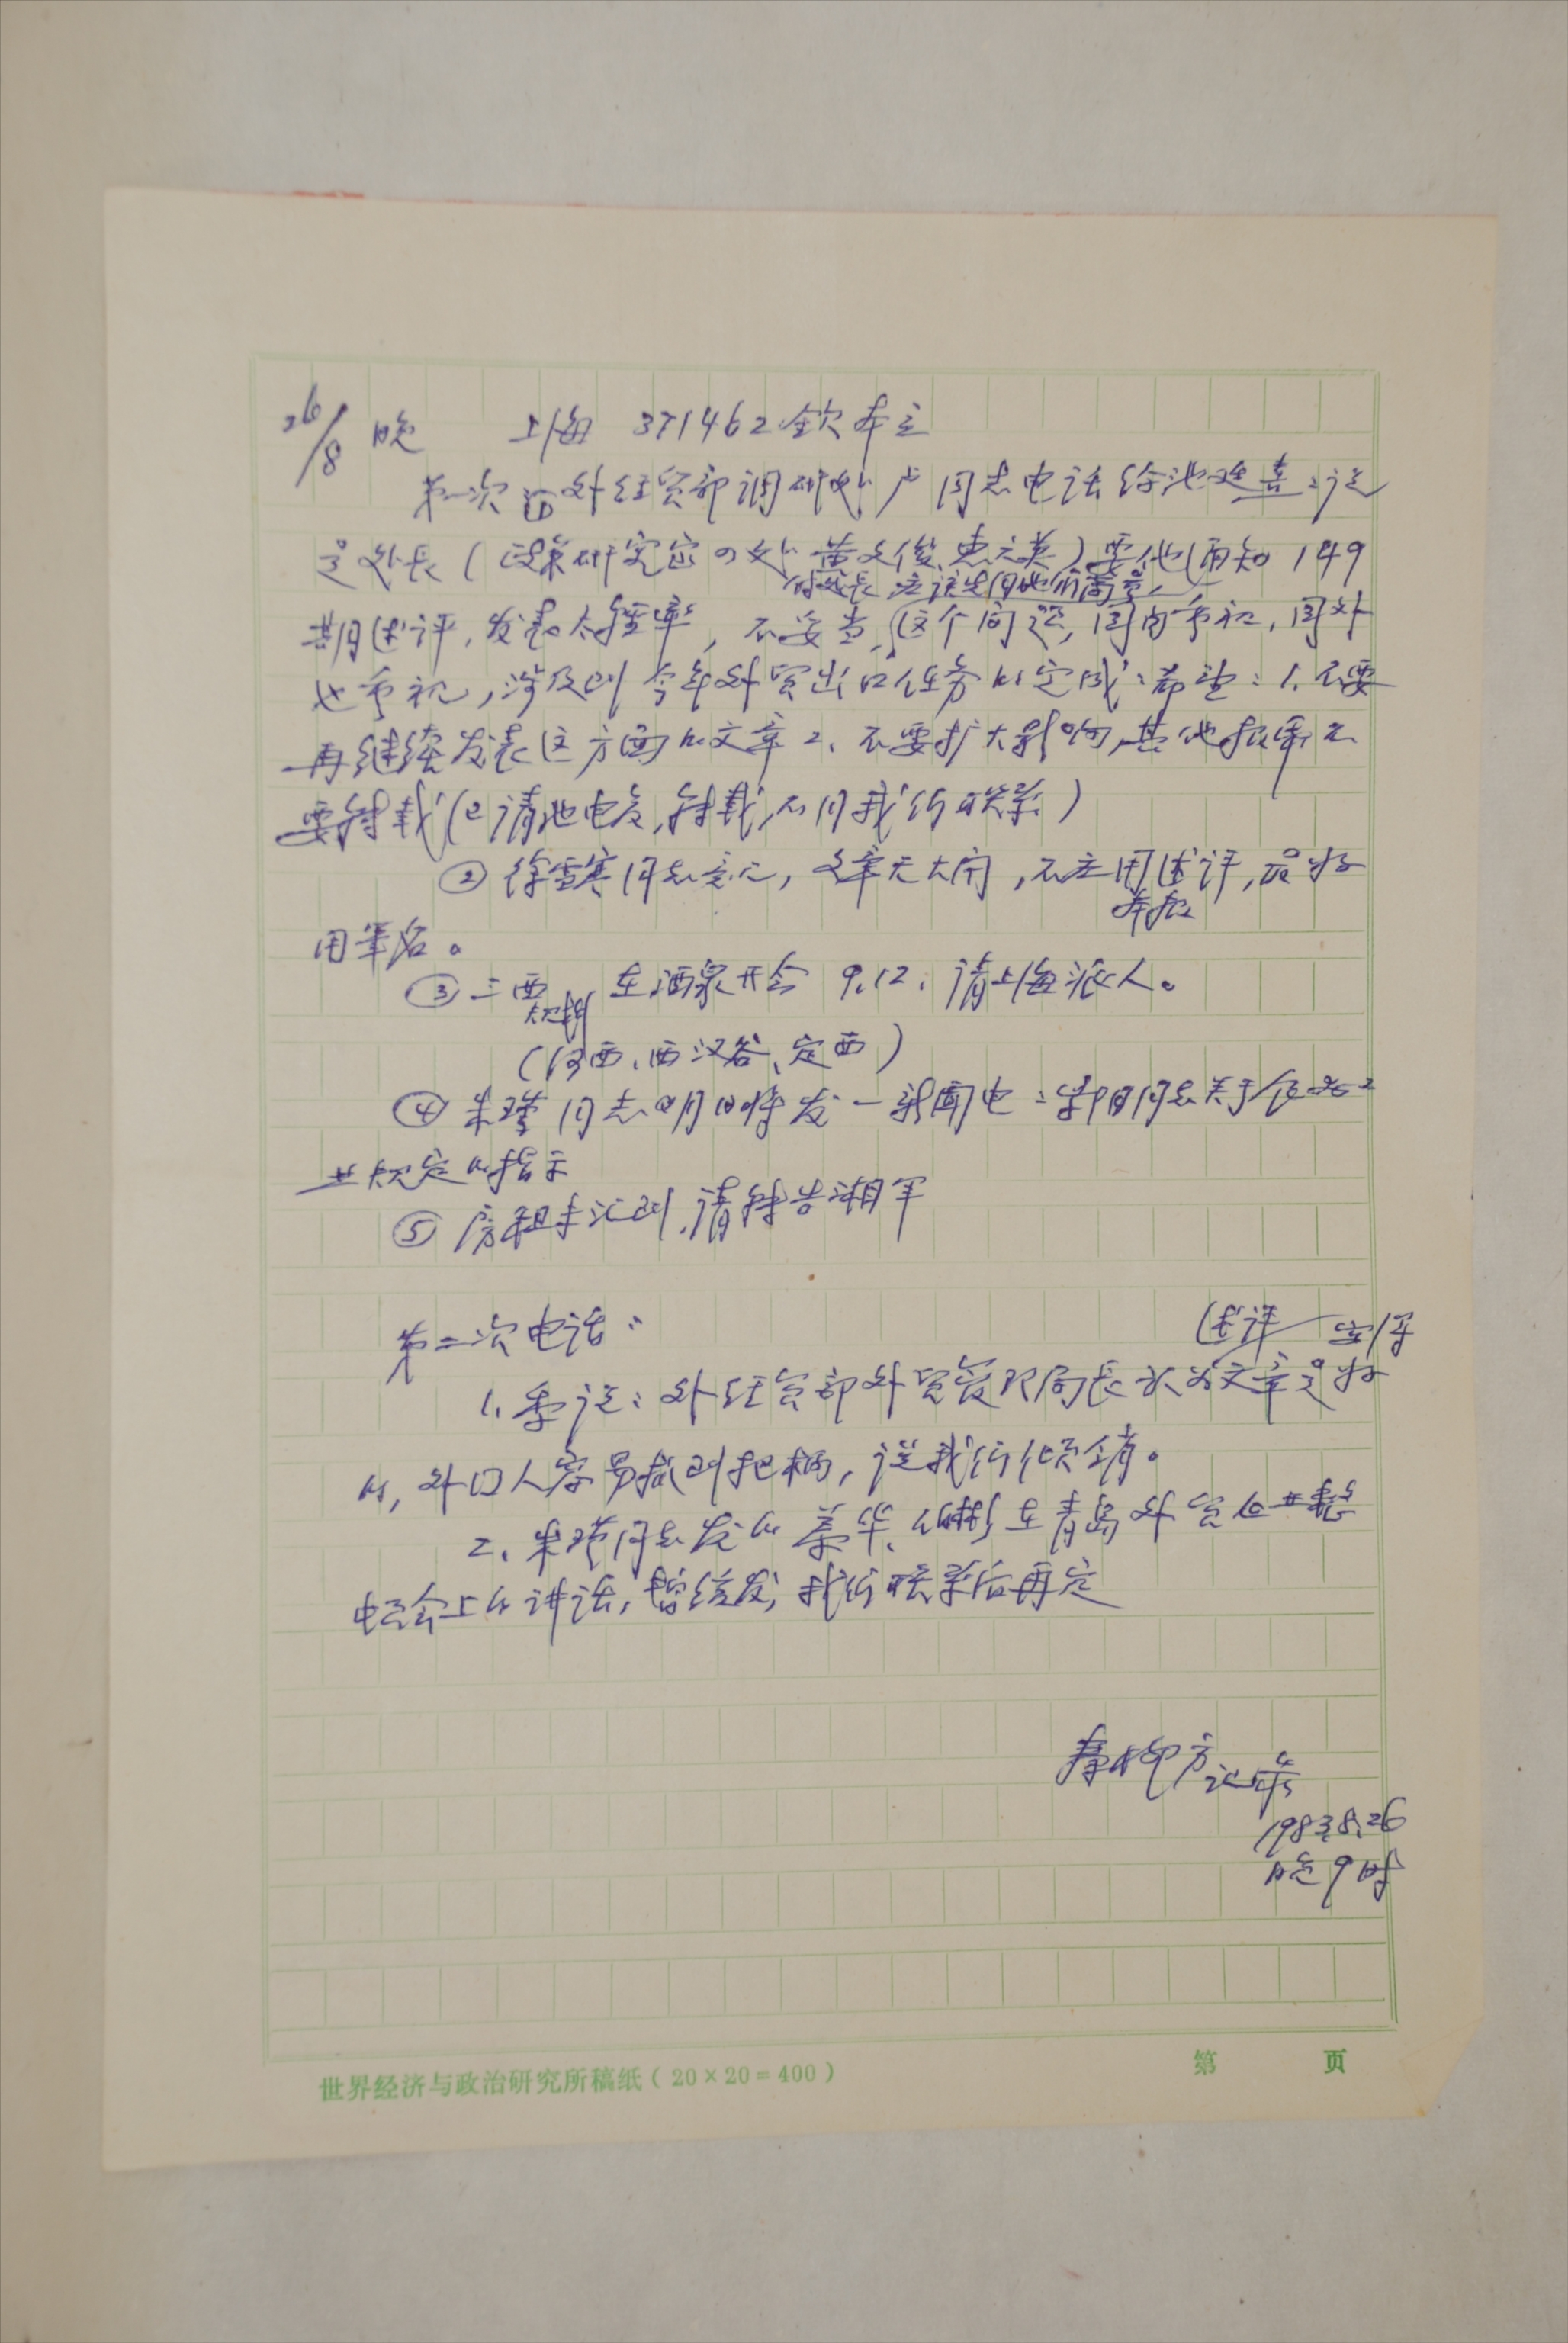 26/8 晚 上海 371462 钦本立
第一次 ① 外经贸部调研处卢同志电话给池 喜：说
是处长（政策研究室 处黄文俊、惠 英）要他通知149
付处长 应该先同他们商量，
期述评，发表太轻率，不妥当，这个问题，国内重视，国外
也重视，涉及到今年外贸出口任务的完成：希望：1、不要
再继续发表这方面的文章2、不要扩大影响，其他报纸不
要转载（ 请他电复，转载，不同我们联系）
② 徐雪寒同志意见，文章无大问，不应用述评，最好
本报
用笔名。
③ 三西 在酒泉开会 9.12，请上海派人。
规划
（河西、西汉谷、定西）
④ 朱 同志明日将发一新闻电： 同志关于
业规定的指示
⑤ 房租未汇到，请转告湘军
第二次电话：
述评 
1、季说：外经贸部外贸管理局长认为文章是好
的，外国人容易抓到把柄，说我们倾销。
2、朱 同志发的 华、 在青岛外贸企业整
会上的讲话，暂缓发，我们联系后再定
秦柳方记录
1983.8.26
晚9时
世界经济与政治研究所稿纸（20×20=400）
第 页